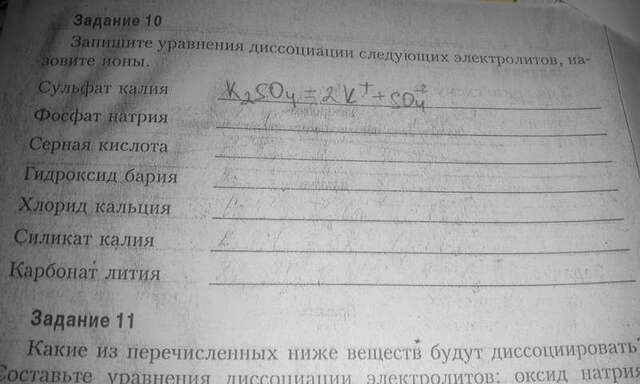 Задание 10
Запишите уравнения диссоциации следующих электролитов, на-
зовите ионы.
Сульфат калия K₂SO₄ = 2K⁺ + SO₄⁻²
Фосфат натрия
Серная кислота
Гидроксид бария
Хлорид кальция
Силикат калия
Карбонат лития
Задание 11
Какие из перечисленных ниже веществ будут диссоциировать?
Составьте уравнения диссоциации электролитов: оксид натрия